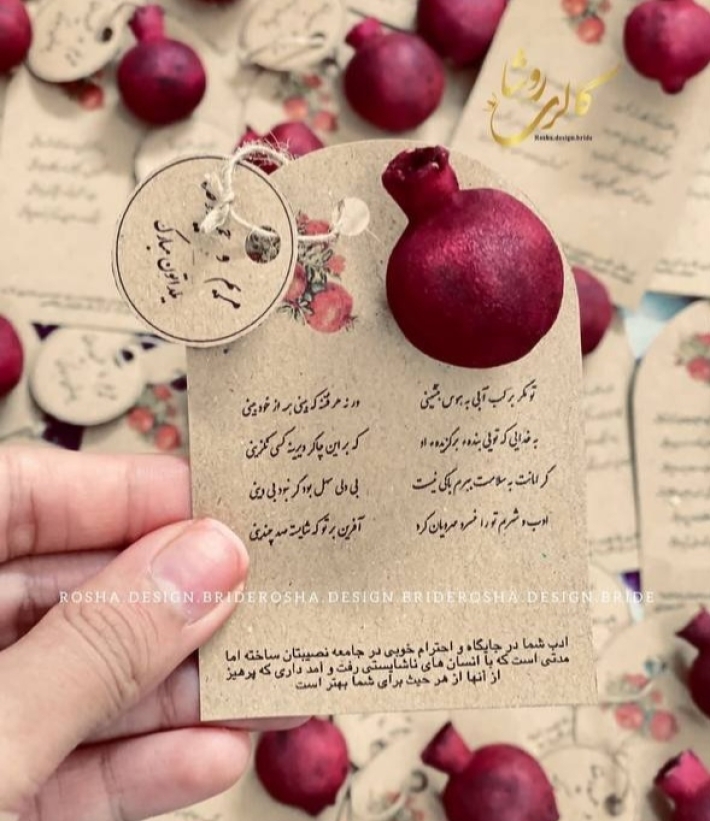 گالری روشا
Rosha.design.bride
مریم و
یلداتون مبارک
تو مگر بر لب آبی به هوس بنشینی
ور نه هر فتنه که بینی همه از خود بینی
به خدایی که تویی بنده‌ء بگزیده‌ء او
که بر این چاکر دیرینه کسی نگزینی
گر امانت به سلامت ببرم باکی نیست
بی دلی سهل بود گر نبود بی دینی
ادب و شرم تو را خسرو مهرویان کرد
آفرین بر تو که شایسته صد چندینی
ROSHA.DESIGN.BRIDEROSHA.DESIGN.BRIDEROSHA.DESIGN.BRIDE
ادب شما در جایگاه و احترام خوبی در جامعه نصیبتان ساخته اما
مدتی است که با انسان های ناشایستی رفت و آمد داری که پرهیز
از آنها از هر حیث برای شما بهتر است